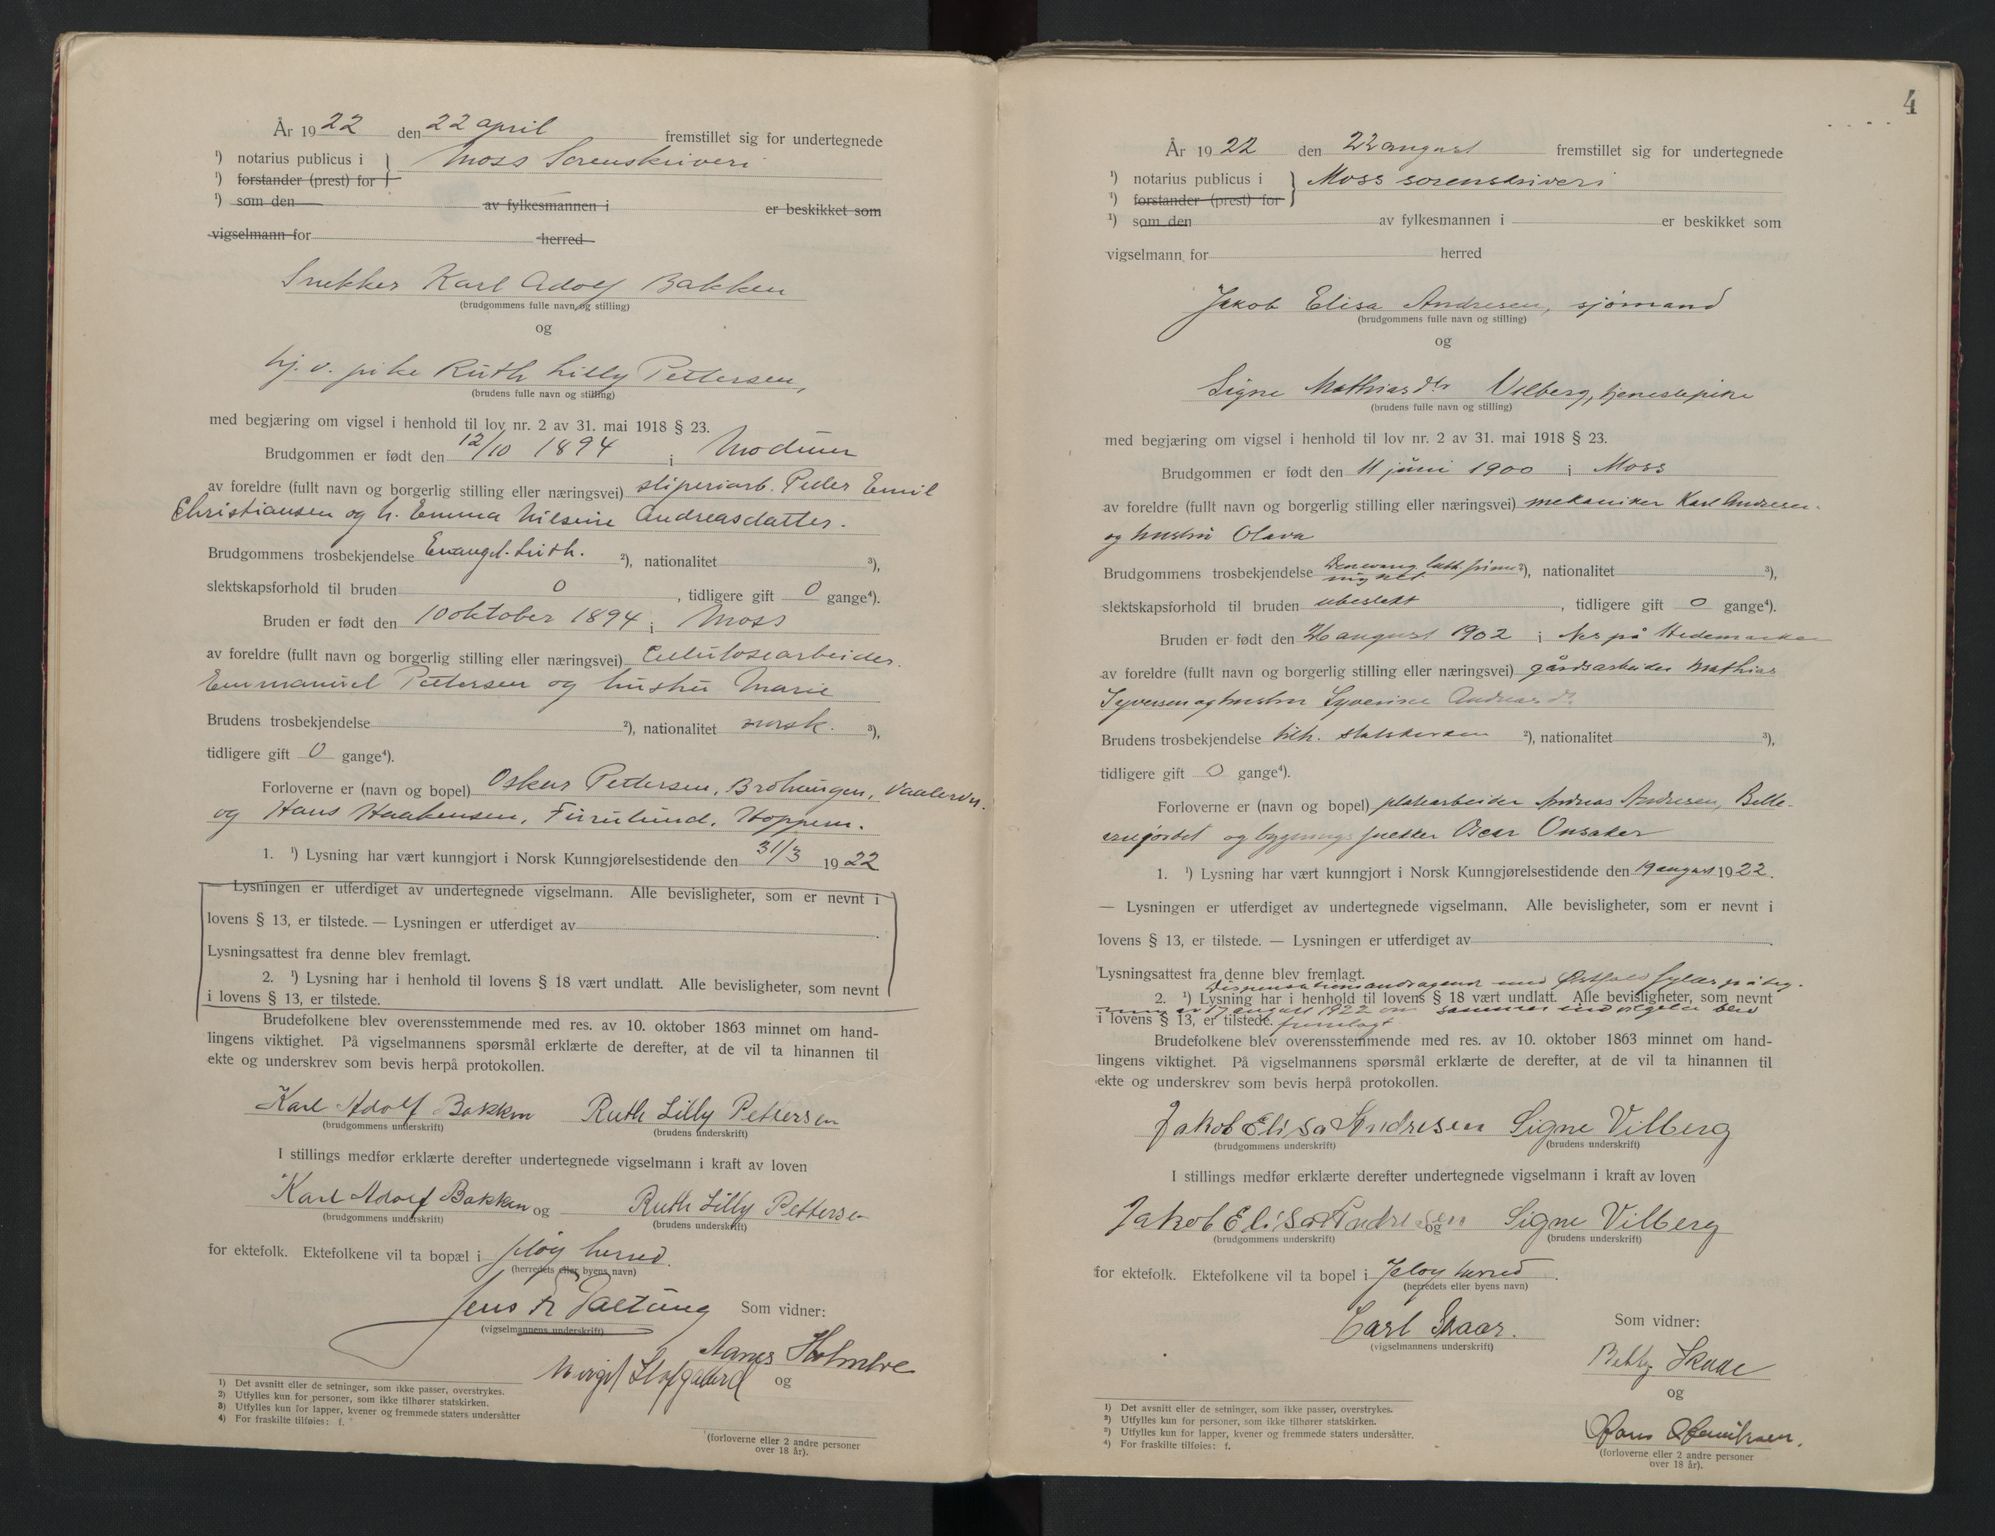 År 1922 den 22 april fremstillet sig for undertegnede
¹) notarius publicus i } Moss Sorenskriveri
¹) forstander (prest) for
¹) som den av fylkesmannen i er beskikket som
vigselmann for herred
Snekker Karl Adolf Bakken
(brudgommens fulle navn og stilling)
og
hj. v. pike Ruth Lilly Pettersen,
(brudens fulle navn og stilling)
med begjæring om vigsel i henhold til lov nr. 2 av 31. mai 1918 § 23.
Brudgommen er født den 12/10 1894 i Modum
av foreldre (fullt navn og borgerlig stilling eller næringsvei) sliperiarb. Peder Emil
Christiansen og h. Emma Nilsine Andreasdatter.
Brudgommens trosbekjendelse Evangel. luth. ²), nationalitet ³),
slektskapsforhold til bruden 0, tidligere gift 0 gange⁴).
Bruden er født den 10 oktober 1894 i Moss
av foreldre (fullt navn og borgerlig stilling eller næringsvei) Cellulosearbeider
Emmanuel Pettersen og hustru Marie
Brudens trosbekjendelse ²), nationalitet norsk. ³),
tidligere gift 0 gange⁴).
Forloverne er (navn og bopel) Oskar Pettersen, Brohaugen, Vaaler
og Hans Haakensen, Furulund, Hoppern.
1. ¹) Lysning har vært kunngjort i Norsk Kunngjørelsestidende den 31/3 1922
— Lysningen er utferdiget av undertegnede vigselmann. Alle bevisligheter, som er nevnt i
lovens § 13, er tilstede. — Lysningen er utferdiget av
Lysningsattest fra denne blev fremlagt.
2. ¹) Lysning har i henhold til lovens § 18 vært undlatt. Alle bevisligheter, som nevnt
i lovens § 13, er tilstede.
Brudefolkene blev overensstemmende med res. av 10. oktober 1863 minnet om hand-
lingens viktighet. På vigselmannens spørsmål erklærte de derefter, at de vil ta hinannen til
ekte og underskrev som bevis herpå protokollen.
Karl Adolf Bakken Ruth Lilly Pettersen
(brudgommens underskrift) (brudens underskrift)
I stillings medfør erklærte derefter undertegnede vigselmann i kraft av loven
Karl Adolf Bakken og Ruth Lilly Pettersen
(brudgommens underskrift) (brudens underskrift)
for ektefolk. Ektefolkene vil ta bopæl i Jeløy herred.
(herredets eller byens navn)
Jens Som vidner:
(vigselmannens underskrift)
Holmboe
og
¹) Det avsnitt eller de setninger, som ikke passer, overstrykes.
²) Utfylles kun for personer, som ikke tilhører statskirken.
³) Utfylles kun for lapper, kvener og fremmede staters undersåtter
⁴) For fraskilte tilføies: f.
(forloverne eller 2 andre personer
over 18 år).
4
År 1922 den 22 august fremstillet sig for undertegnede
¹) notarius publicus i } Moss sorenskriveri
¹) forstander (prest) for
¹) som den av fylkesmannen i er beskikket som
vigselmann for herred
Jakob Elisa Andresen, sjömand
(brudgommens fulle navn og stilling)
og
Signe Mathiasdtr Vilberg, tjenestepike
(brudens fulle navn og stilling)
med begjæring om vigsel i henhold til lov nr. 2 av 31. mai 1918 § 23.
Brudgommen er født den 11 juni 1900 i Moss
av foreldre (fullt navn og borgerlig stilling eller næringsvei) mekaniker Karl Andresen
og hustru Olava
Brudgommens trosbekjendelse Den evang. luth. frime nighet ²), nationalitet ³),
slektskapsforhold til bruden ubeslekt, tidligere gift 0 gange⁴).
Bruden er født den 26 august 1902 i Nes på Hedemarken
av foreldre (fullt navn og borgerlig stilling eller næringsvei) gårdsarbeider Mathias
Syversen og hustru Syverine Andreasd
Brudens trosbekjendelse tilh. statskirken ²), nationalitet ³),
tidligere gift 0 gange⁴).
Forloverne er (navn og bopel) platearbeider Andreas Andresen, Belle-
og bygningssnekker Oscar Onsaker
1. ¹) Lysning har vært kunngjort i Norsk Kunngjørelsestidende den 19 august 1922.
— Lysningen er utferdiget av undertegnede vigselmann. Alle bevisligheter, som er nevnt i
lovens § 13, er tilstede. — Lysningen er utferdiget av
Lysningsattest fra denne blev fremlagt.
Dispensationsandragende med Østfold fylkes påteg-
2. ¹) Lysning har i henhold til lovens § 18 vært undlatt. Alle bevisligheter, som nevnt
av 17 august 1922 om blev
i lovens § 13, er tilstede. fremlagt
Brudefolkene blev overensstemmende med res. av 10. oktober 1863 minnet om hand-
lingens viktighet. På vigselmannens spørsmål erklærte de derefter, at de vil ta hinannen til
ekte og underskrev som bevis herpå protokollen.
Jakob Elisa Andresen Signe Vilberg
(brudgommens underskrift) (brudens underskrift)
I stillings medfør erklærte derefter undertegnede vigselmann i kraft av loven
Jakob Elisa Andresen og Signe Vilberg
(brudgommens underskrift) (brudens underskrift)
for ektefolk. Ektefolkene vil ta bopel i Jeløy herred.
(herredets eller byens navn)
Carl Skaar. Som vidner:
(vigselmannens underskrift)
Betty Skade
og
Hans Henriksen.
¹) Det avsnitt eller de setninger, som ikke passer, overstrykes.
²) Utfylles kun for personer, som ikke tilhører statskirken.
³) Utfylles kun for lapper, kvener og fremmede staters undersåtter.
⁴) For fraskilte tilføies: f.
(forloverne eller 2 andre personer
over 18 år).